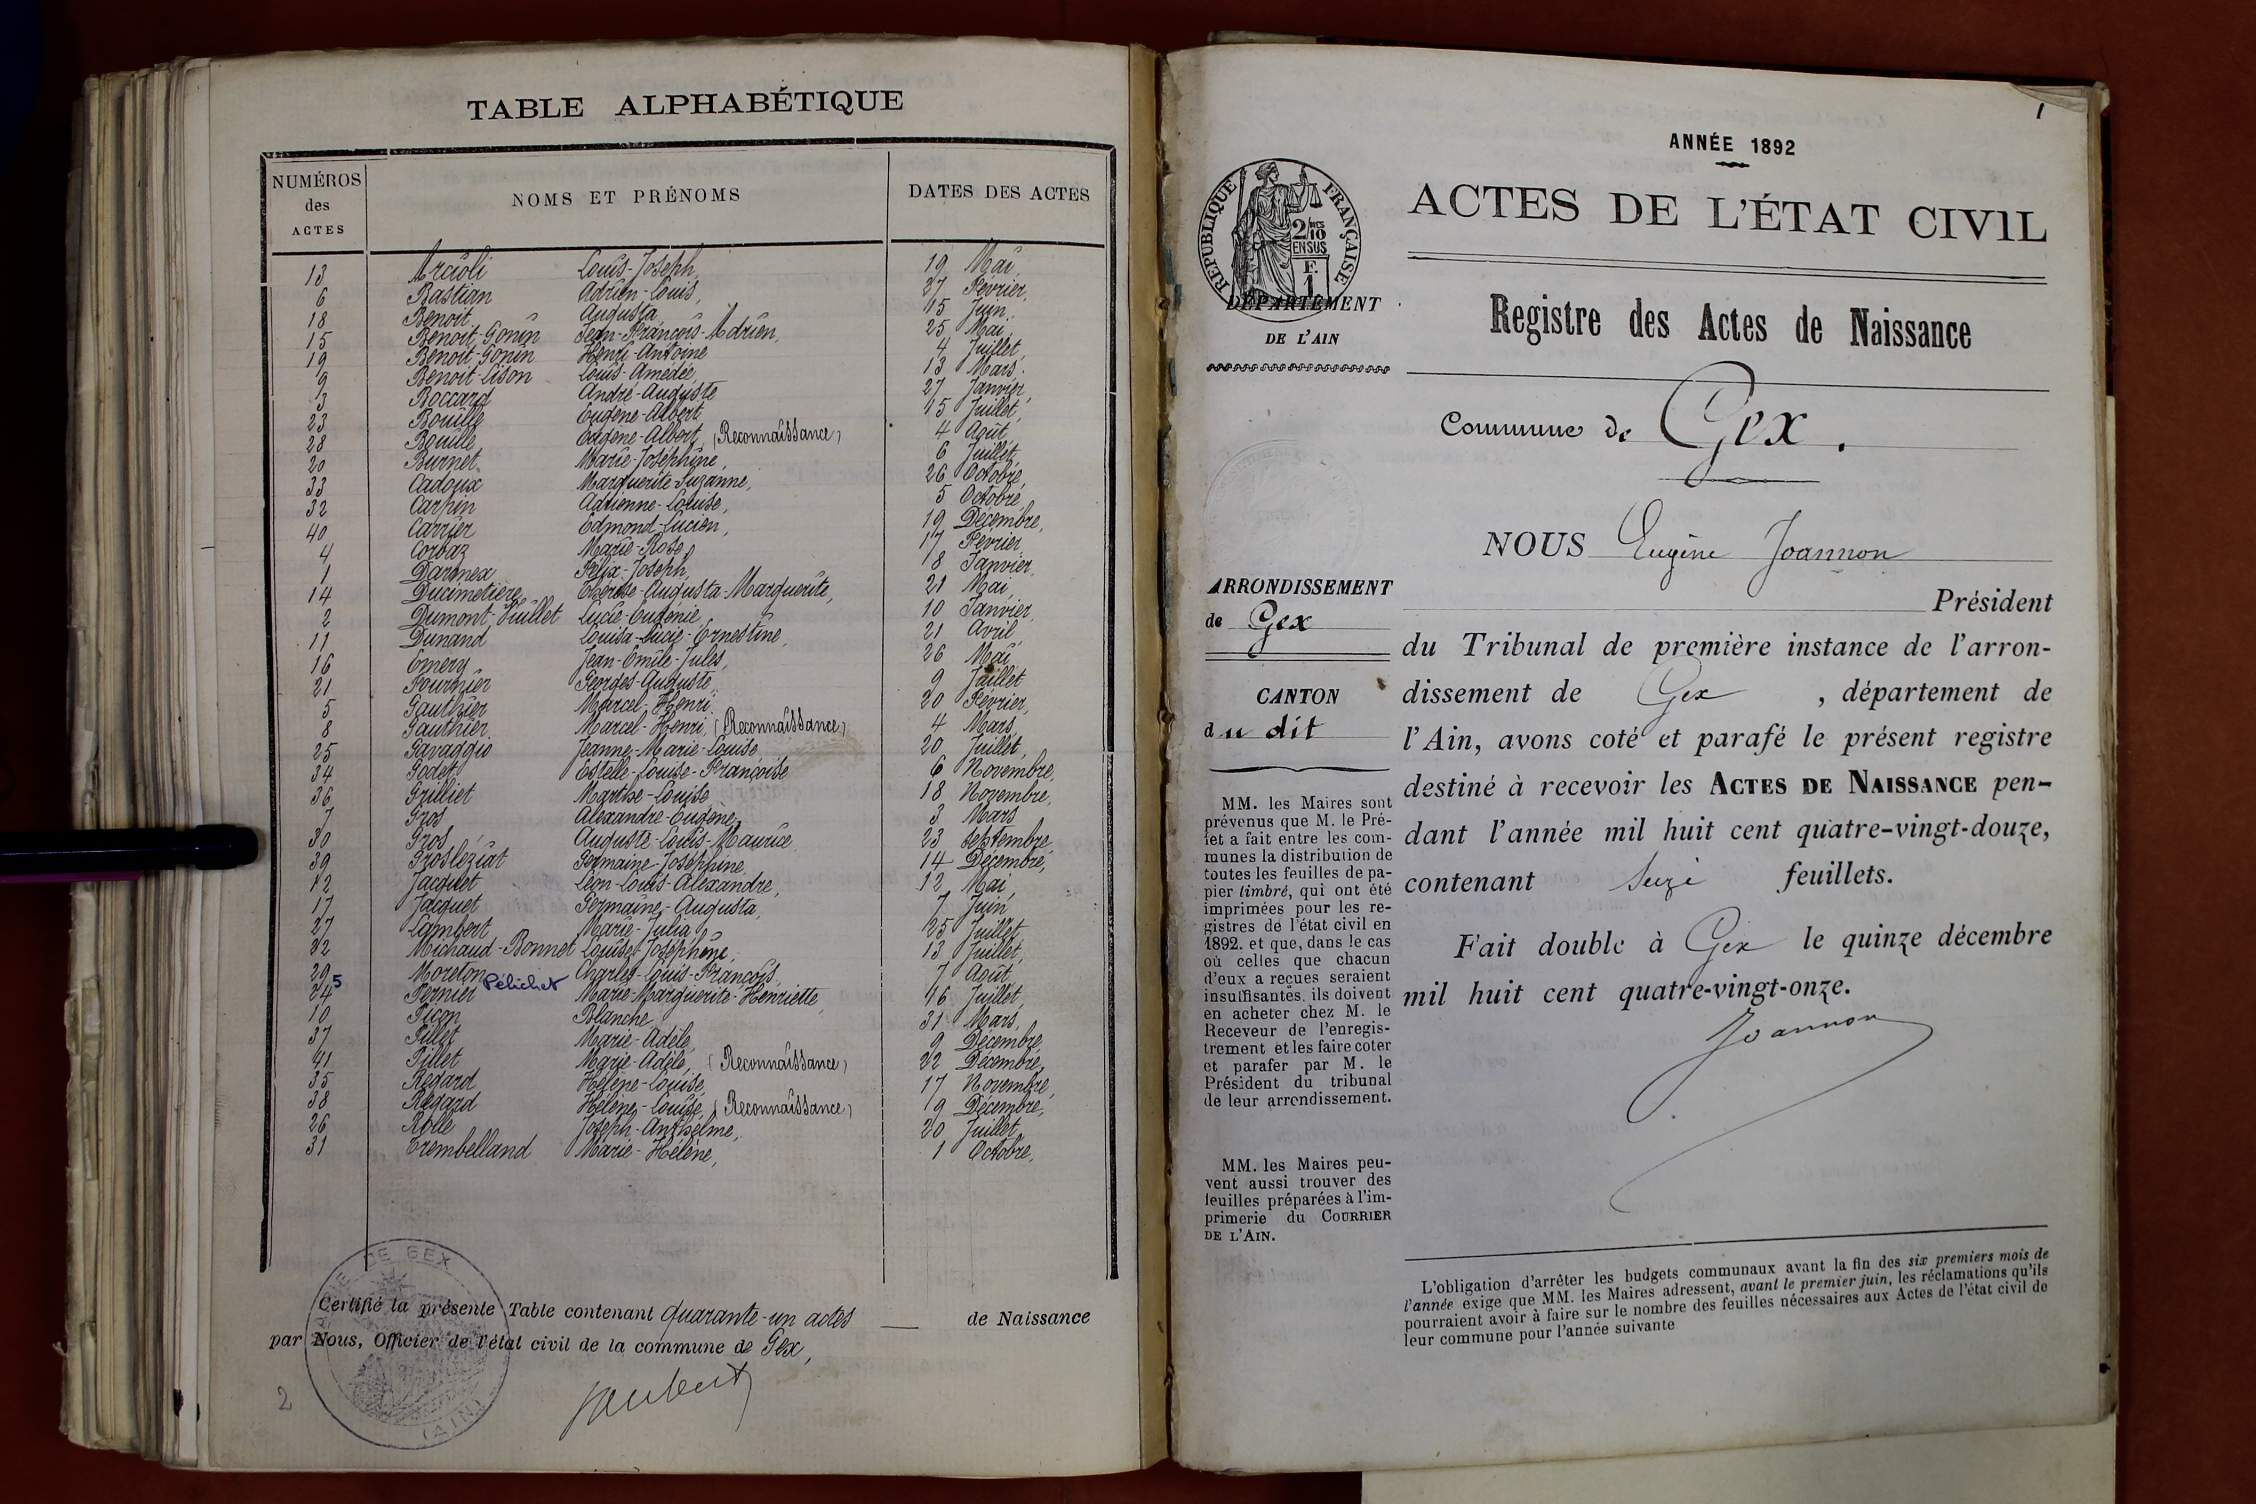 TABLE ALPHABÉTIQUE
NUMÉROS des ACTES NOMS ET PRÉNOMS DATES DES ACTES
13 Arcioli Louis-Joseph, 19 Mai,
6 Bastian Adrien-Louis, 27 Février,
18 Benoit Augusta, 15 Juin,
15 Benoit-Gonin Jean-François-Adrien, 25 Mai,
19 Benoit-Gonin Henri-Antoine 4 Juillet,
9 Benoit-Lison Louis-Amédée, 13 Mars.
3 Boccard André-Auguste 27 Janvier,
23 Bouille Eugène-Albert, 15 Juillet,
28 Bouille Eugène-Albert, (Reconnaissance) 4 Août,
20 Burnet Marie-Joséphine, 6 Juillet,
33 Cadoux Marguerite-Suzanne, 26 Octobre,
32 Carpin Adrienne-Louise, 5 Octobre,
40 Carrier Edmond-Lucien, 19 Décembre,
4 Corbaz Marie-Rose, 17 Février
1 Darmex Félix-Joseph, 8 Janvier,
14 Ducimetière Thérèse-Augusta-Marguerite, 21 Mai,
2 Dumont-Fuillet Lucie-Eugénie, 10 Janvier,
11 Dunand Louisa-Lucie-Ernestine, 21 Avril
16 Emery Jean-Emile-Jules, 26 Mai
21 Fournier Georges-Auguste, 9 Juillet
5 Gauthier Marcel-Henri, 20 Février,
8 Gauthier Marcel-Henri, (Reconnaissance) 4 Mars,
25 Gavaggio Jeanne-Marie-Louise 20 Juillet,
34 Godet Estelle-Louise-Françoise 6 Novembre,
36 Grilliet Marthe-Louise 18 Novembre,
7 Gros Alexandre-Eugène, 3 Mars
30 Gros Auguste-Louis-Maurice 23 Septembre,
39 Grosléziat Germaine-Joséphine 14 Décembre,
12 Jacquet Léon-Louis-Alexandre, 12 Mai,
17 Jacquet Germaine-Augusta, 7 Juin
27 Lambert Marie-Julia 25 Juillet,
22 Michaud-Bonnet Louise-Joséphine, 13 Juillet,
29 Moreton Charles-Louis-François, 7 Août,
24 5 Pernier Pélichet Marie-Marguerite-Henriette, 16 Juillet,
10 Picon Blanche, 31 Mars,
37 Pillet Marie-Adèle, 9 Décembre,
41 Pillet Marie-Adèle, (Reconnaissance) 22 Décembre,
35 Regard Hélène-Louise, 17 Novembre,
38 Regard Hélène-Louise, (Reconnaissance) 9 Décembre,
26 Rolle Joseph-Anthelme, 20 Juillet,
31 Trembelland Marie-Hélène, 1 Octobre,
Certifié la présente Table contenant quarante-un actes de Naissance
par Nous, Officier de l'état civil de la commune de Gex,
MAIRIE DE GEX (AIN)
2
1
ANNÉE 1892
ACTES DE L'ÉTAT CIVIL
RÉPUBLIQUE FRANÇAISE
2/10 EN SUS
F. 1
DÉPARTEMENT
DE L'AIN
Registre des Actes de Naissance
Commune de Gex.
ARRONDISSEMENT
de Gex
CANTON
du dit
NOUS Eugène Joannon
Président
du Tribunal de première instance de l'arron-
dissement de Gex, département de
l'Ain, avons coté et parafé le présent registre
destiné à recevoir les ACTES DE NAISSANCE pen-
dant l'année mil huit cent quatre-vingt-douze,
contenant seize feuillets.
Fait double à Gex le quinze décembre
mil huit cent quatre-vingt-onze.
Joannon
MM. les Maires sont
prévenus que M. le Pré-
fet a fait entre les com-
munes la distribution de
toutes les feuilles de pa-
pier timbré, qui ont été
imprimées pour les re-
gistres de l'état civil en
1892. et que, dans le cas
où celles que chacun
d'eux a reçues seraient
insuffisantes, ils doivent
en acheter chez M. le
Receveur de l'enregis-
trement et les faire coter
et parafer par M. le
Président du tribunal
de leur arrondissement.
MM. les Maires peu-
vent aussi trouver des
feuilles préparées à l'im-
primerie du COURRIER
DE L'AIN.
L'obligation d'arrêter les budgets communaux avant la fin des six premiers mois de
l'année exige que MM. les Maires adressent, avant le premier juin, les réclamations qu'ils
pourraient avoir à faire sur le nombre des feuilles nécessaires aux Actes de l'état civil de
leur commune pour l'année suivante